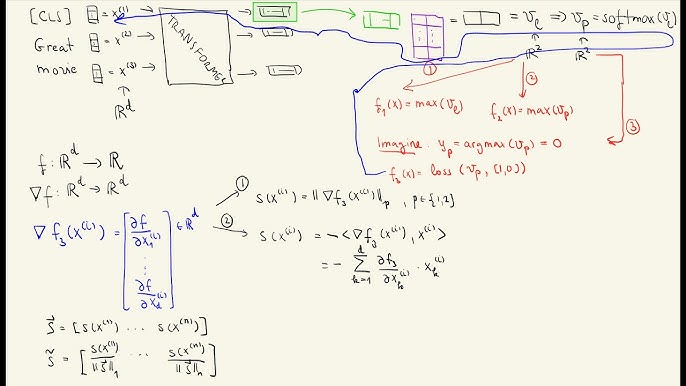 [CLS] = x⁽¹⁾
Great = x⁽²⁾
movie = x⁽³⁾
ℝᵈ
TRANSFORMER
= = v_ℓ ⇒ v_p = softmax(v_ℓ)
ℝ² ℝ²
① ② ③
f₁(x) = max(v_ℓ) f₂(x) = max(v_p)
Imagine: y_p = argmax(v_p) = 0
f₃(x) = loss(v_p, [1,0])
f: ℝᵈ → ℝ
∇f: ℝᵈ → ℝᵈ
∇f₃(x⁽ⁱ⁾) = [∂f/∂x₁⁽ⁱ⁾ ⋮ ∂f/∂x_d⁽ⁱ⁾] ∈ ℝᵈ
① s(x⁽ⁱ⁾) = ‖∇f₃(x⁽ⁱ⁾)‖_p , p ∈ {1,2}
② s(x⁽ⁱ⁾) = -<∇f₃(x⁽ⁱ⁾), x⁽ⁱ⁾>
= - ∑_{k=1}^{d} ∂f₃/∂x_k⁽ⁱ⁾ · x_k⁽ⁱ⁾
s⃗ = [s(x⁽¹⁾) ... s(x⁽ⁿ⁾)]
s̃ = [s(x⁽¹⁾)/‖s⃗‖₁ ... s(x⁽ⁿ⁾)/‖s⃗‖₁]